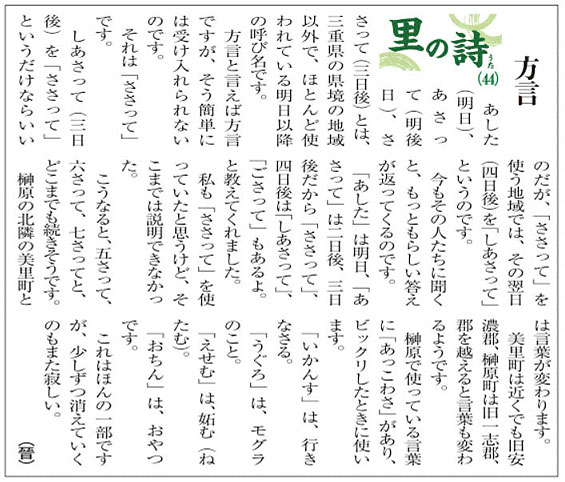 方言
里の詩
うた
(44)
あした
（明日）、
あさっ
て（明後
日）、さ
さって（三日後）とは、
三重県の県境の地域
以外で、ほとんど使
われている明日以降
の呼び名です。
方言と言えば方言
ですが、そう簡単に
は受け入れられない
のです。
それは「ささって」
です。
しあさって（三日
後）を「ささって」
というだけならいい
のだが、「ささって」を
使う地域では、その翌日
（四日後）を「しあさって」
というのです。
今もその人たちに聞く
と、もっともらしい答え
が返ってくるのです。
「あした」は明日、「あ
さって」は二日後、三日
後だから「ささって」、
四日後は「しあさって」、
「ごさって」もあるよ。
と教えてくれました。
私も「ささって」を使
っていたと思うけど、そ
こまでは説明できなかっ
た。
こうなると、五さって、
六さって、七さってと、
どこまでも続きそうです。
榊原の北隣の美里町と
は言葉が変わります。
美里町は近くでも旧安
濃郡、榊原町は旧一志郡、
郡を越えると言葉も変わ
るようです。
榊原で使っている言葉
に「あっこわさ」があり、
ビックリしたときに使い
ます。
「いかんす」は、行き
なさる。
「うぐろ」は、モグラ
のこと。
「えせむ」は、妬む（ね
たむ）。
「おちん」は、おやつ
です。
これはほんの一部です
が、少しずつ消えていく
のもまた寂しい。
（晉）